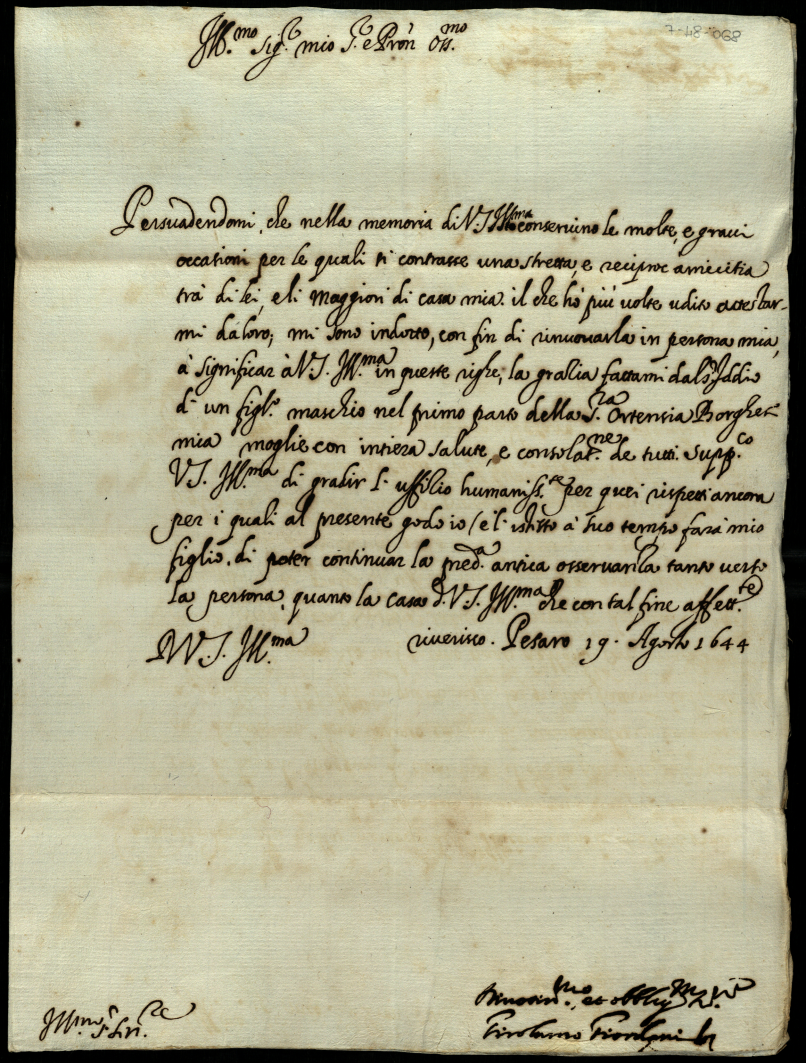 7-48-068
Ill.mo Sig.r mio S.r e Pron Oss.mo
Persuadendomi, che nella memoria di V.S. Ill.ma conseruino le molte, e graui
occationi per le quali si contrasse una stretta, e reciproc amicitia
trà di lei, e li Maggiori di casa mia il che hò più uolte udito attestar-
mi da loro; mi sono indotto, con fin di rinuouarla in persona mia,
à significar à V.S. Ill.ma in queste righe, la gratia fattami dal S.r Iddio
d'un figl.o maschio nel primo parto della S.ra Ortensia Borghesi
mia moglie con intiera salute, e consolat.ne de tutti. Supp.co
V.S. Ill.ma di gradir l'uffitio humaniss.te per quei rispetti ancora
per i quali al presente godo io (e l'istesso à suo tempo farà mio
figlio, di poter continuar la pred.a antica osseruanza tanto uerso
la persona, quanto la casa di V.S. Ill.ma che con tal fine affett.te
D V.S. Ill.ma riuerisco. Pesaro 19. Agosto 1644
Ill.mo S.r
Deuotiss.mo et obblig.mo
Girolamo